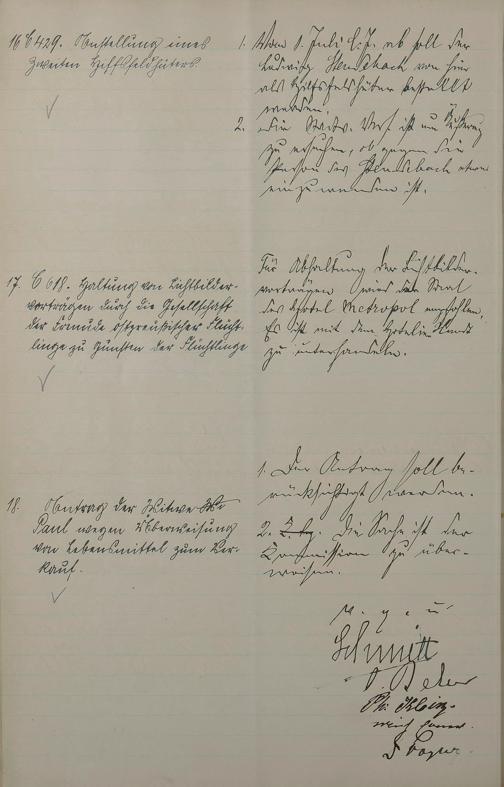 16 C 429. Anstellung eines
zweiten Hilfsfeldhüters
1. Vom 1. Juli l. J. ab soll der
Ludwig Hensebach von hier
als Hilfsfeldhüter bestellt
werden.
2. Die Stadtv. Vers. ist um
zu ersuchen, ob gegen die
Person des Hensebach etwas
einzuwenden ist.
17. C 618. Haltung von Lichtbilder-
vorträgen durch die Gesellschaft
der Freunde ostpreußischer Flücht-
linge zu Gunsten der Flüchtlinge
Für Abhaltung der Lichtbilder-
vorträgen wird der Saal
des Hotel Metropol empfohlen.
Es ist mit dem
zu unterhandeln.
18. Antrag der Witwe
Paul wegen Überweisung
von Lebensmittel zum Ver-
kauf.
1. Der Antrag soll be-
rücksichtigt werden.
2. Die Sache ist der
Kommission zu über-
weisen.
v. g. u.
Schmitt
Ph. Klein